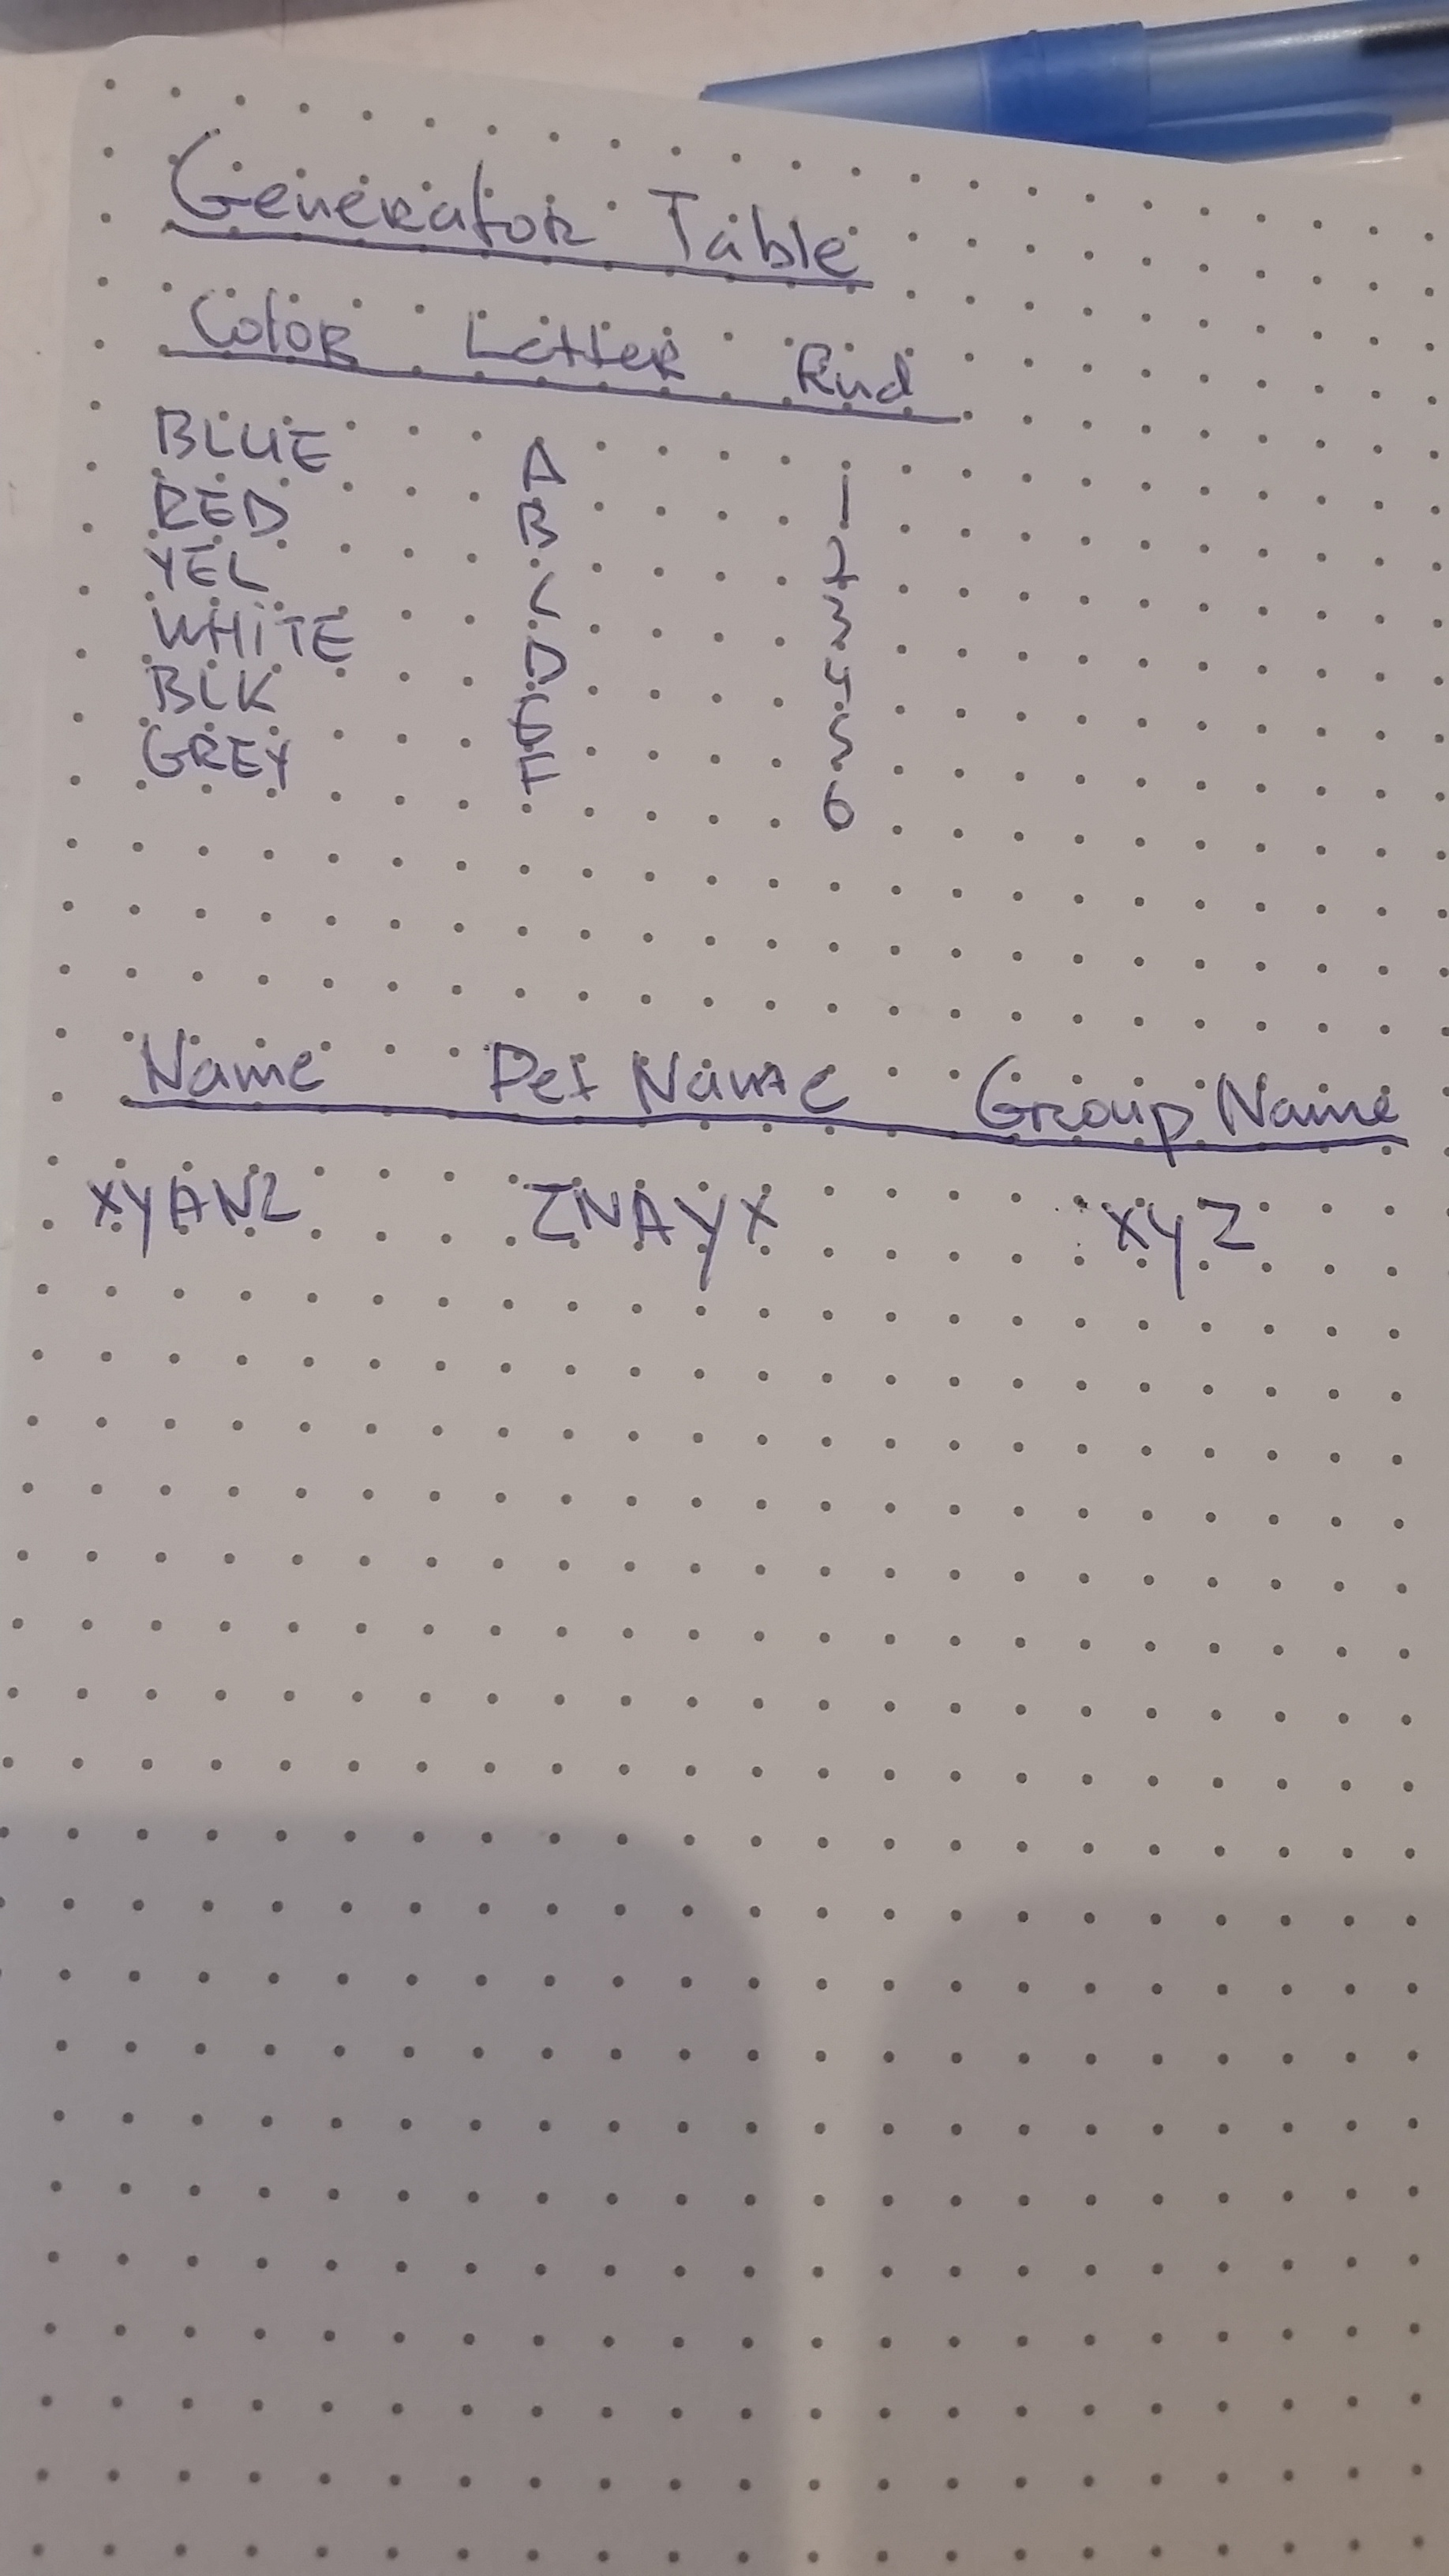 Generator Table
Color Letter Rnd
BLUE A 1
RED B 2
YEL C 3
WHiTE D 4
BLK E 5
GREY F 6
Name Pet Name Group Name
XYANZ ZNAYX XYZ